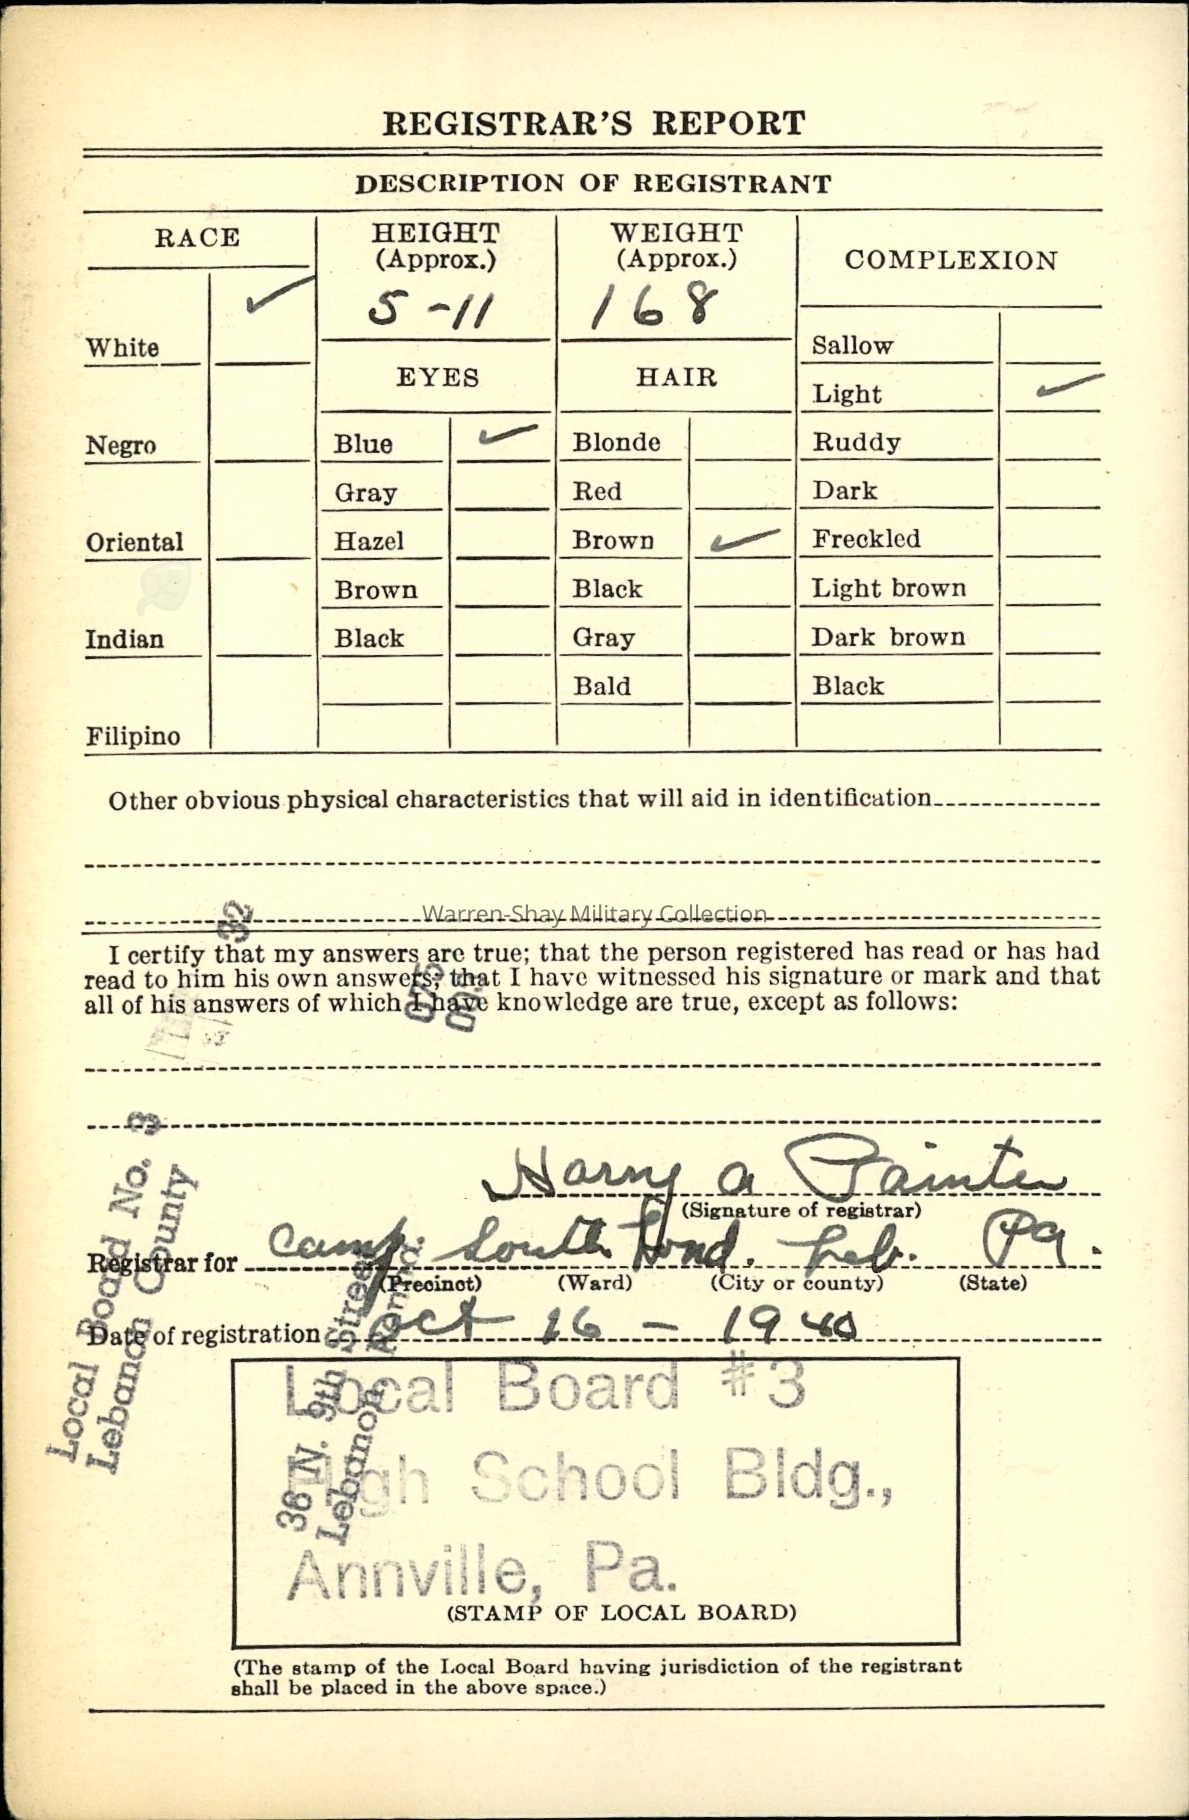 REGISTRAR'S REPORT
DESCRIPTION OF REGISTRANT
RACE
HEIGHT
(Approx.)
5-11
WEIGHT
(Approx.)
168
COMPLEXION
White ✓
Negro
Oriental
Indian
Filipino
EYES
Blue ✓
Gray
Hazel
Brown
Black
HAIR
Blonde
Red
Brown ✓
Black
Gray
Bald
Sallow
Light ✓
Ruddy
Dark
Freckled
Light brown
Dark brown
Black
Other obvious physical characteristics that will aid in identification
Warren-Shay Military Collection
32
I certify that my answers are true; that the person registered has read or has had
read to him his own answers; that I have witnessed his signature or mark and that
all of his answers of which I have knowledge are true, except as follows:
075
Harry a Painter
(Signature of registrar)
Registrar for Camp South Lond. Leb. Pa.
(Precinct) (Ward) (City or county) (State)
Date of registration Oct 16 - 1940
Local Board No. 3
Lebanon County
36 N. 9th Street
Lebanon, Penna.
Local Board #3
High School Bldg.,
Annville, Pa.
(STAMP OF LOCAL BOARD)
(The stamp of the Local Board having jurisdiction of the registrant
shall be placed in the above space.)